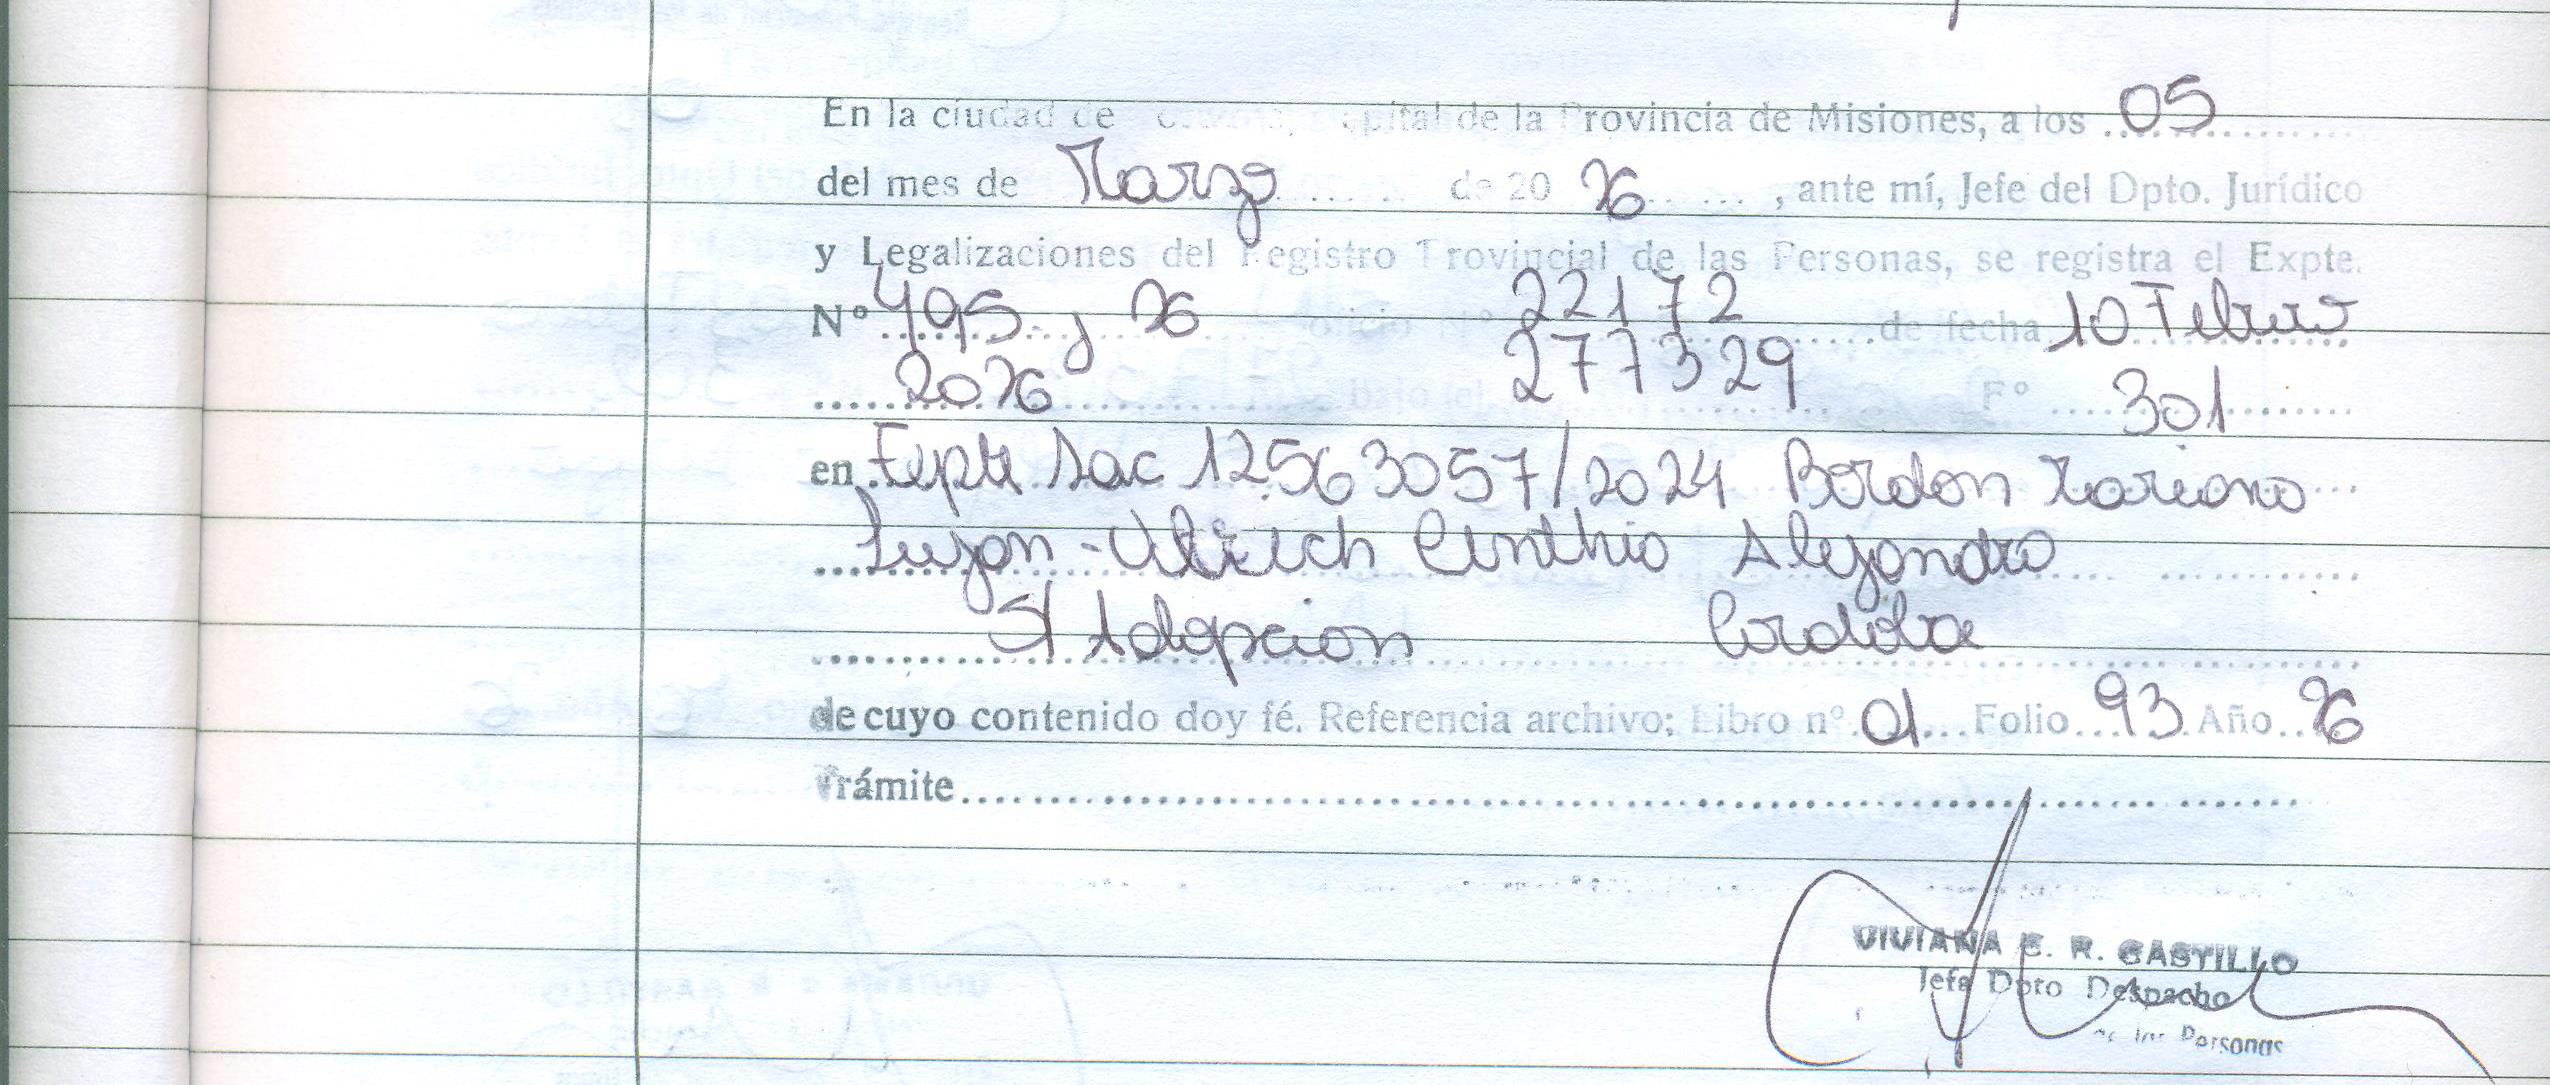 En la ciudad de Posadas, capital de la Provincia de Misiones, a los 05
del mes de Marzo de 20 26, ante mí, Jefe del Dpto. Jurídico
y Legalizaciones del Registro Provincial de las Personas, se registra el Expte.
Nº 495 y 26 oficio Nº 22172 de fecha 10 Febrero
2026 bajo el 277329 Fº 301
en Expte Sac 12563057/2024 Bordon Mariano
Lujan - Ulrich Cinthia Alejandra
S/ Adopcion Cordoba
de cuyo contenido doy fé. Referencia archivo; Libro nº 01 Folio 93 Año 26
Trámite
VIVIANA E. R. CASTILLO
Jefa Dpto Despacho
de las Personas